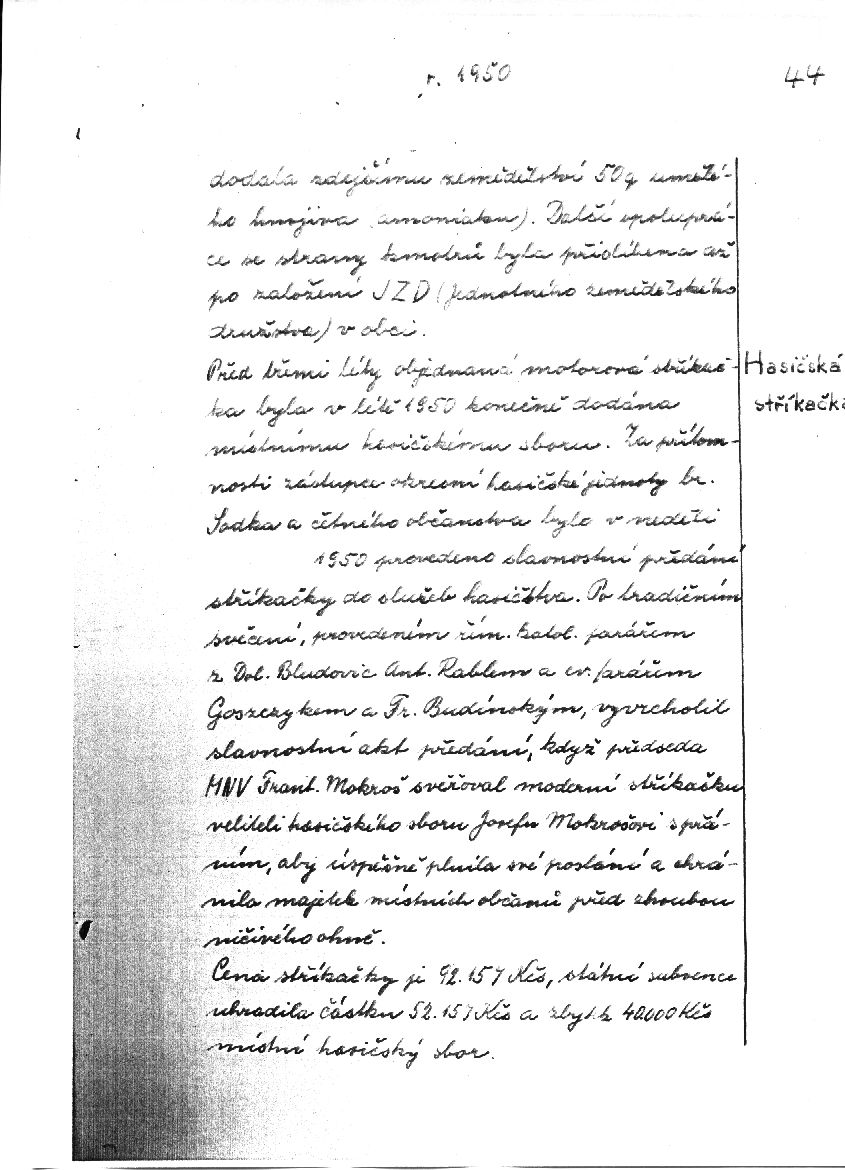 r. 1950
44
dodala zdejšímu zemědělství 50q umělé-
ho hnojiva (amoniaku). Další spoluprá-
ce se strany kmotrů byla přislíbena až
po založení JZD (Jednotného zemědělského
družstva) v obci.
Před třemi léty objednaná motorová stříkač-
ka byla v létě 1950 konečně dodána
místnímu hasičskému sboru. Za přítom-
nosti zástupce okresní hasičské jednoty br.
Sodka a četného občanstva bylo v neděli
1950 provedeno slavnostní předání
stříkačky do služeb hasičstva. Po tradičním
svěcení, provedeném řím. katol. farářem
z Dol. Bludovic Ant. Rablem a ev. farářem
Goszczykem a Fr. Budínským, vyvrcholil
slavnostní akt předání, když předseda
MNV Frant. Mokroš svěřoval moderní stříkačku
veliteli hasičského sboru Josefu Mokrošovi s přá-
ním, aby úspěšně plnila své poslání a chrá-
nila majetek místních občanů před zhoubou
ničivého ohně.
Cena stříkačky je 92.157 Kčs, státní subvence
uhradila částku 52.157 Kčs a zbytek 40.000 Kčs
místní hasičský sbor.
Hasičská
stříkačka